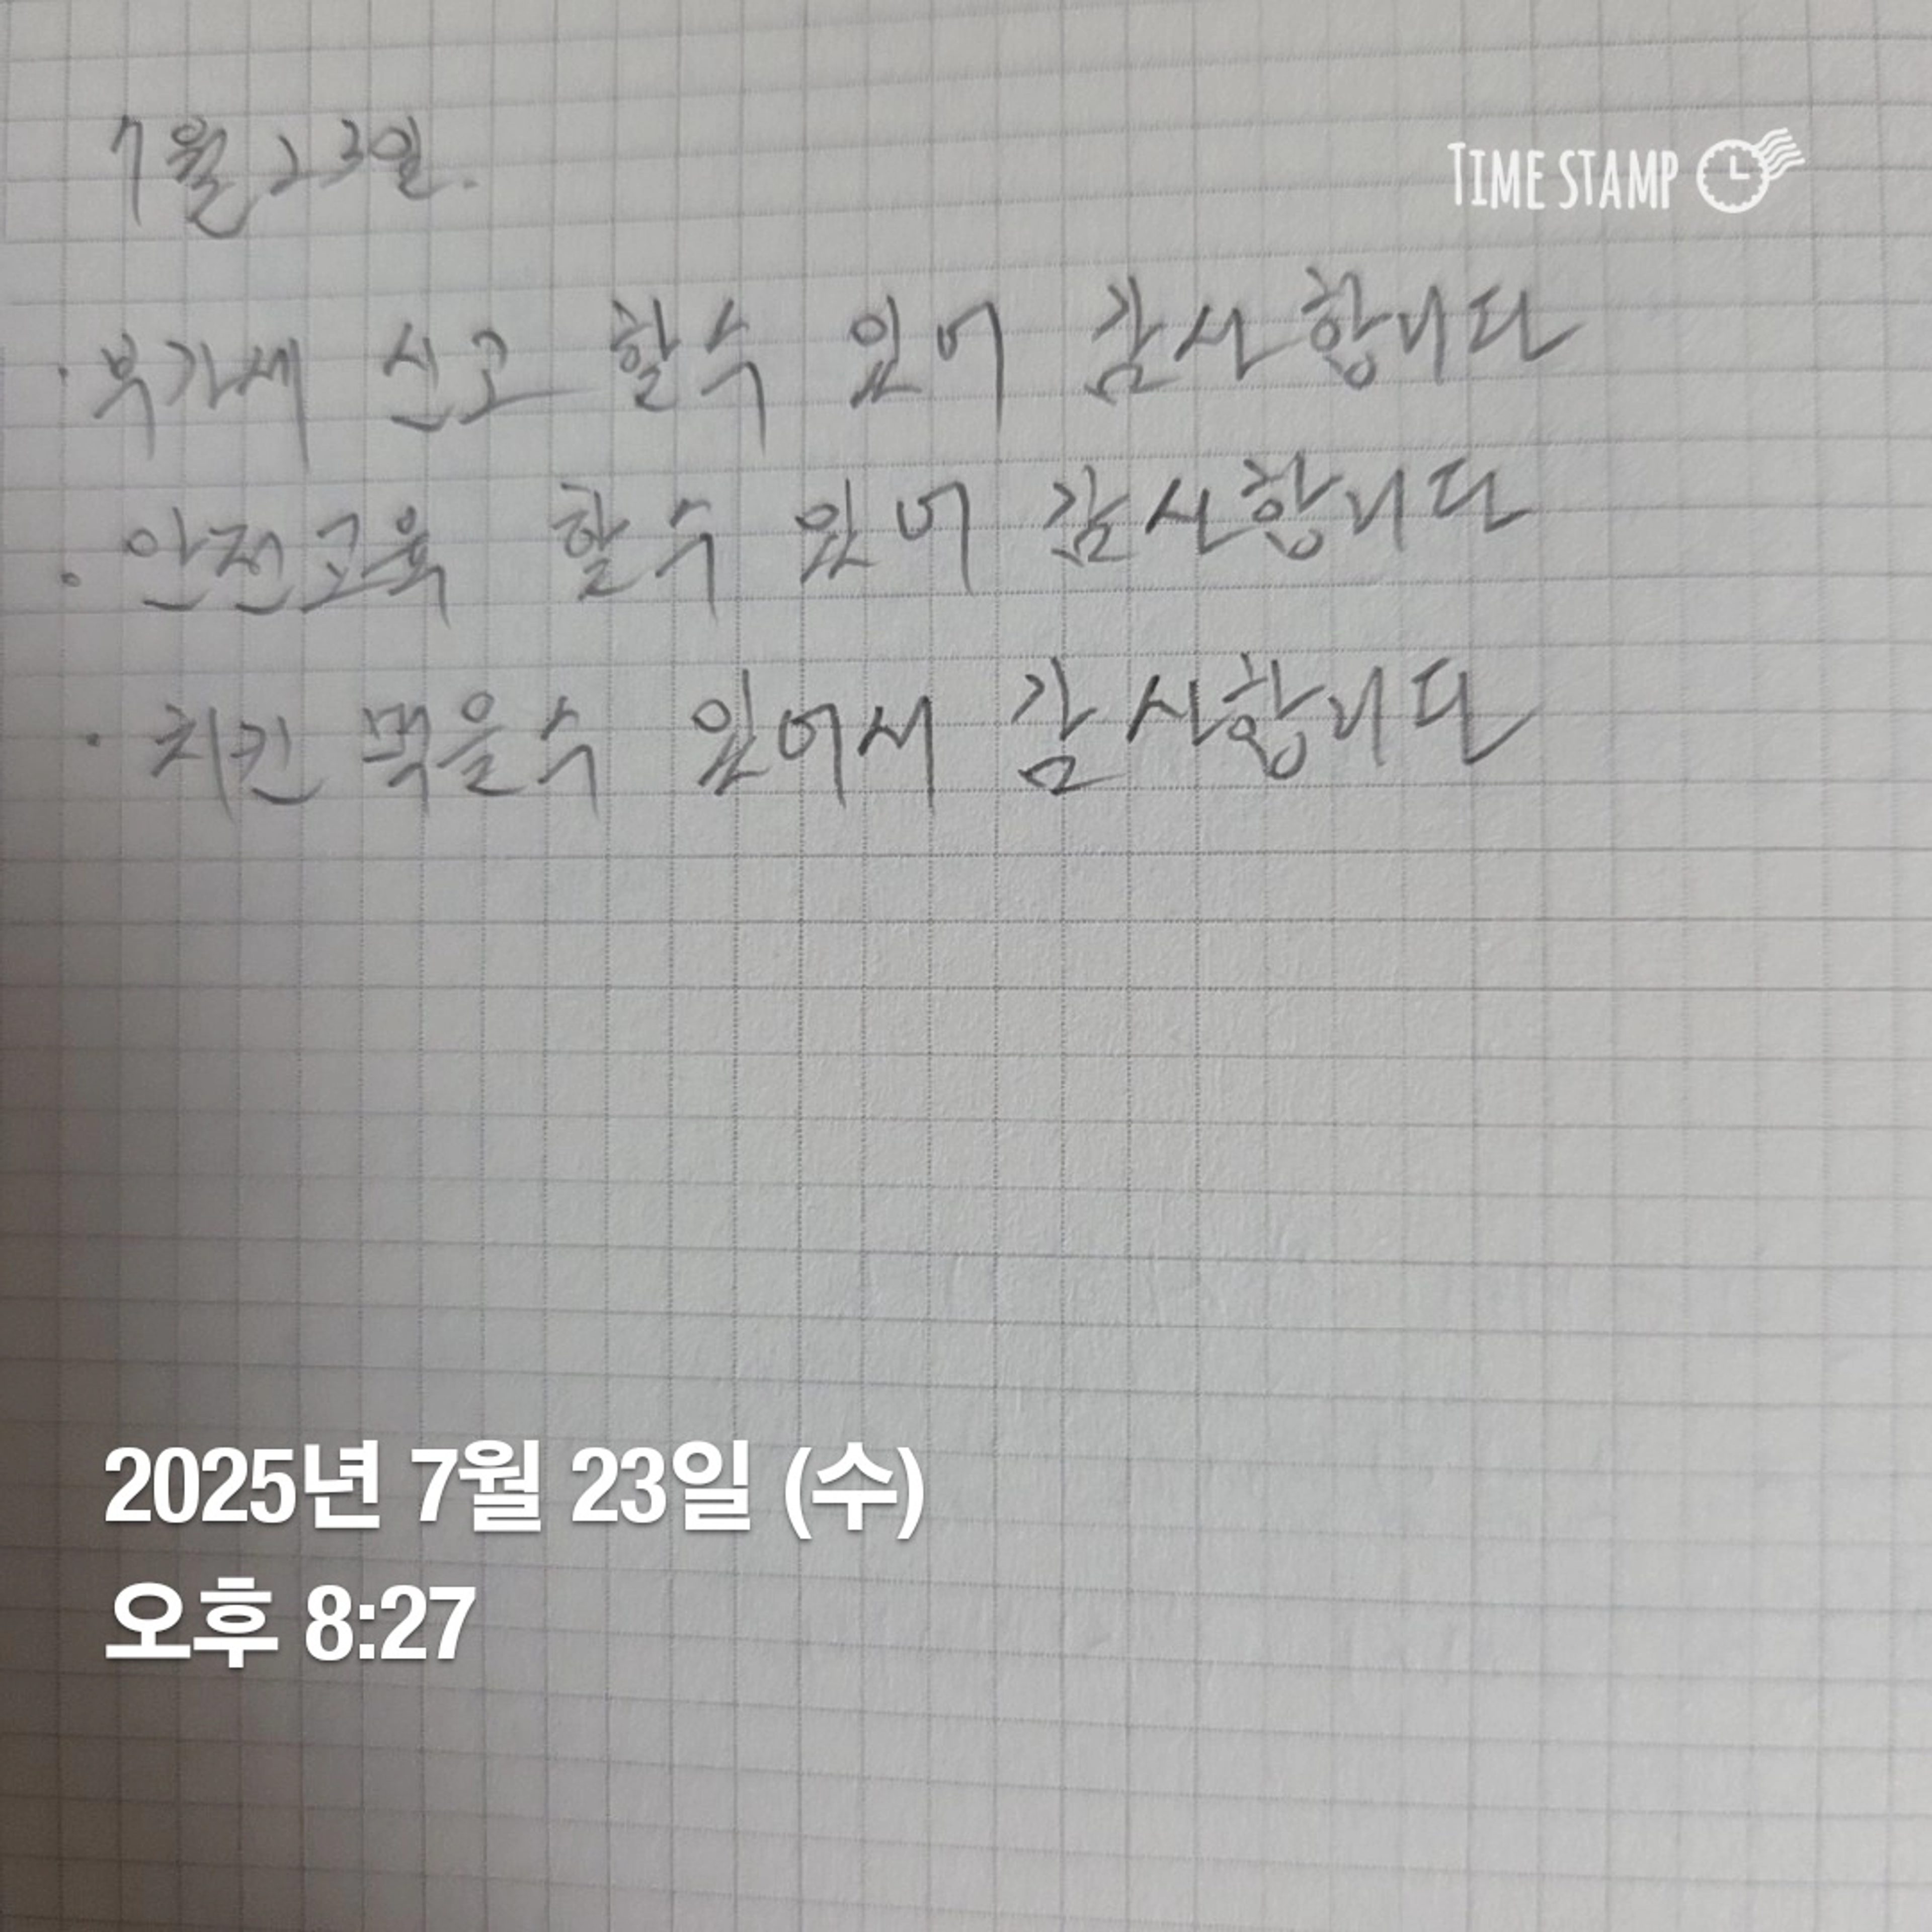 7월 23일.
TIME STAMP
· 부가세 신고 할수 있어 감사합니다
· 안전교육 할수 있어 감사합니다
· 치킨 먹을수 있어서 감사합니다
2025년 7월 23일 (수)
오후 8:27